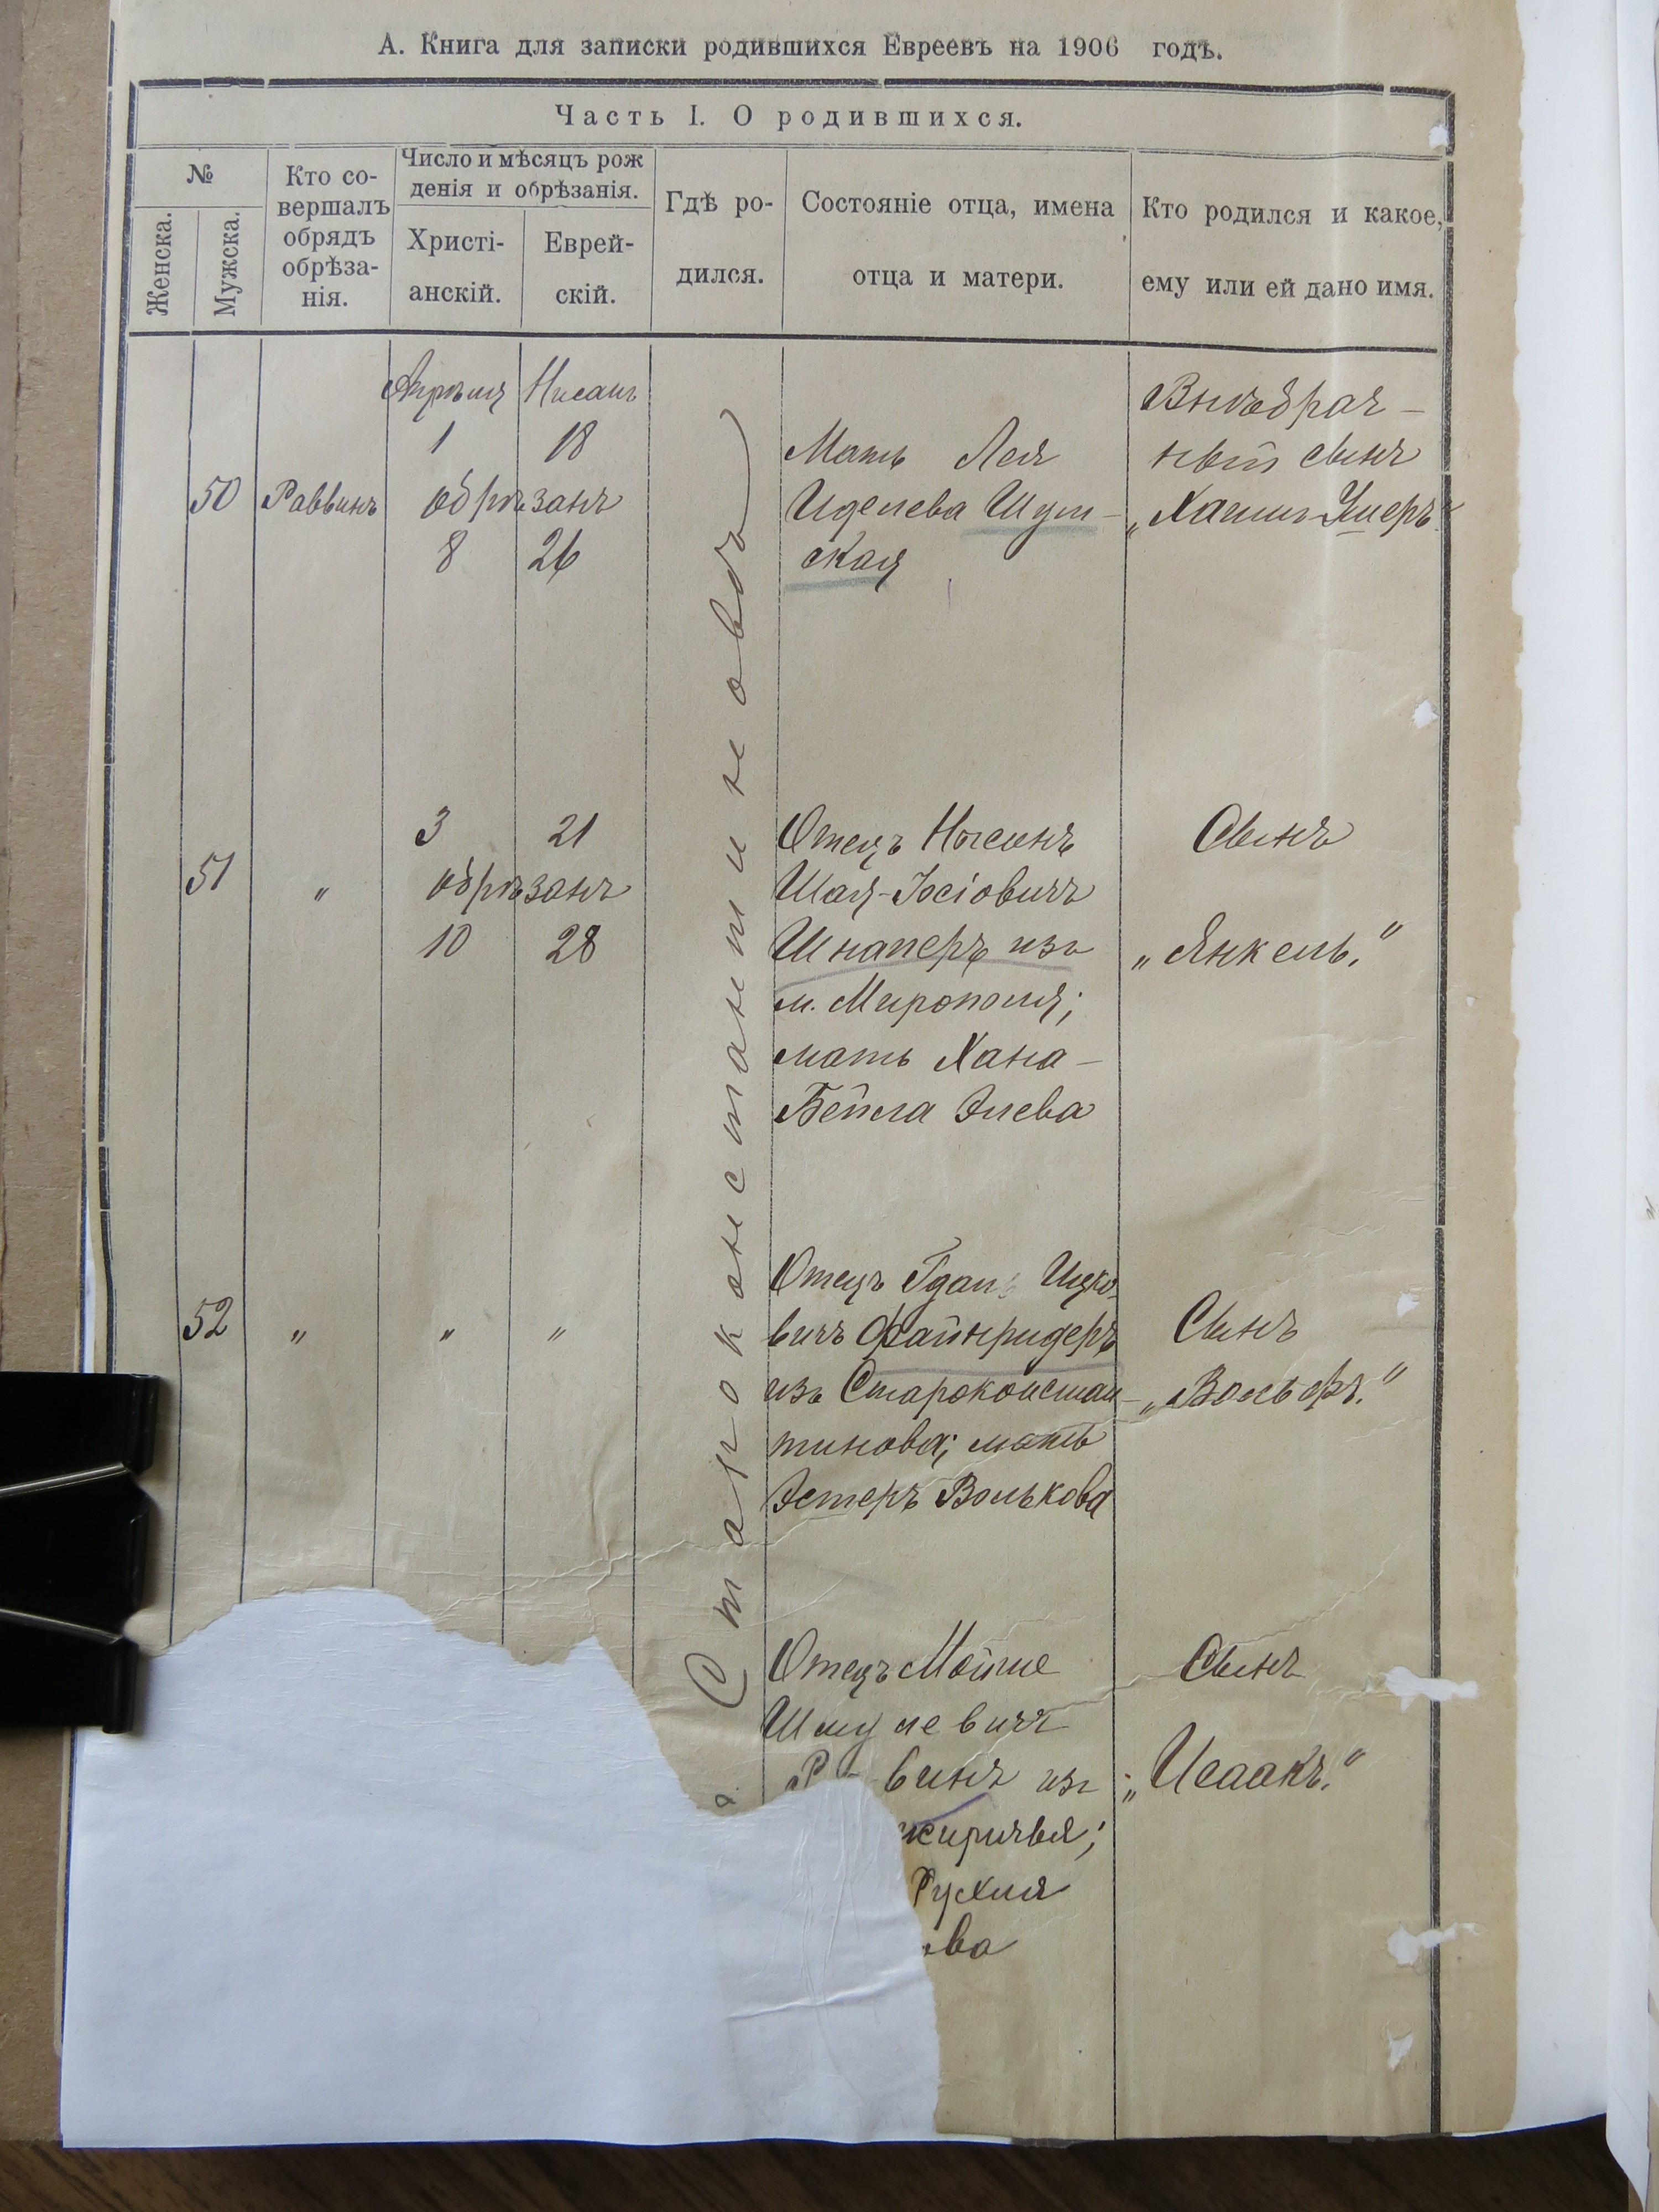 А. Книга для записки родившихся Евреевъ на 1906 годъ.
Часть I. О родившихся.
№
Женска.
Мужска.
Кто со-
вершалъ
обрядъ
обрѣза-
нія.
Число и мѣсяцъ рож
денія и обрѣзанія.
Христі-
анскій.
Еврей-
скій.
Гдѣ ро-
дился.
Состояніе отца, имена
отца и матери.
Кто родился и какое,
ему или ей дано имя.
Староконстантиновъ
Апрѣля Нисанъ
1 18
50 Раввинъ обрѣзанъ
8 26
Мать Лея
Иделева Шум-
ская
Внѣбрач-
ный сынъ
„Хаимъ-Умеръ“
3 21
51 „ обрѣзанъ
10 28
Отецъ Нысинъ
Шая-Іосіовичъ
Шнаперъ изъ
м. Мирополя;
мать Хана-
Бейла Элева
Сынъ
„Янкель.“
52 „ „ „
Отецъ Ицко-
вичъ Файнридеръ
изъ Староконстан-
тинова; мать
Эстеръ Волькова
Сынъ
„Вольфъ.“
Отецъ Мойше
Шмулевичъ
винъ изъ
жиричья;
Рухля
ева
Сынъ
„Исаакъ.“